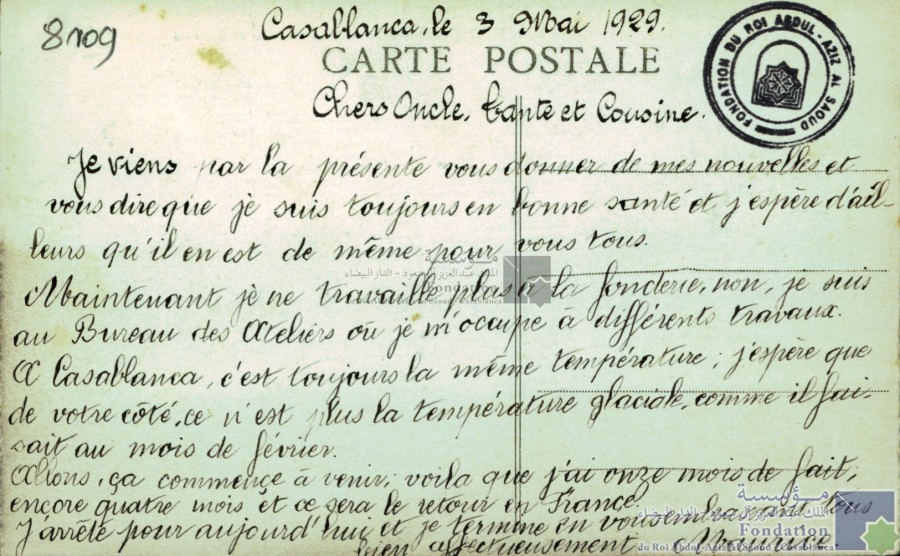 8109
Casablanca, le 3 Mai 1929.
CARTE POSTALE
FONDATION DU ROI ABDUL-AZIZ AL SAOUD
Chers Oncle, tante et Cousine.
Je viens par la présente vous donner de mes nouvelles et
vous dire que je suis toujours en bonne santé et j'espère d'ail-
leurs qu'il en est de même pour vous tous.
مؤسسة
الملك عبد العزيز آل سعود - الدار البيضاء
Fondation
Maintenant je ne travaille plus à la fonderie, non, je suis
au Bureau des Ateliers où je m'ocupe à différents travaux.
A Casablanca, c'est toujours la même température ; j'espère que
de votre côté, ce n'est plus la température glaciale, comme il fai-
sait au mois de février.
Allons, ça commence à venir, voila que j'ai onze mois de fait,
encore quatre mois et ce sera le retour en France.
J'arrête pour aujourd'hui et je termine en vous embrassant tous
bien affectueusement Maurice
مؤسسة
الملك عبد العزيز آل سعود - الدار البيضاء
Fondation
du Roi Abdul-Aziz Al Saoud - Casablanca